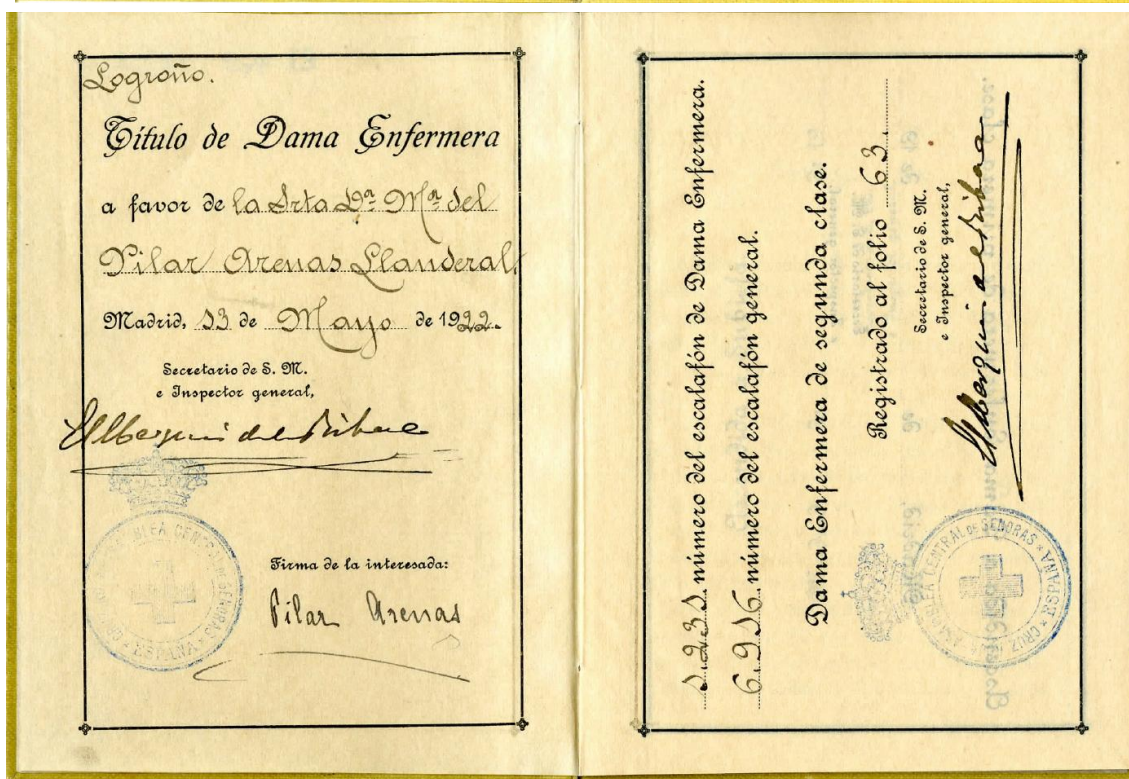 Logroño.
Título de Dama Enfermera
a favor de la Srta Dª Mª del
Pilar Arenas Llanderal.
Madrid, 13 de Mayo de 1922.
Secretario de S. M.
e Inspector general,
El Marqués de la Ribera
ASAMBLEA CENTRAL DE SEÑORAS * ESPAÑA *
Firma de la interesada:
Pilar Arenas
1.231 número del escalafón de Dama Enfermera.
6.916 número del escalafón general.
Dama Enfermera de segunda clase.
Registrado al folio 63.
Secretario de S. M.
e Inspector general,
El Marqués de la Ribera
ASAMBLEA CENTRAL DE SEÑORAS * CRUZ ROJA * ESPAÑA *